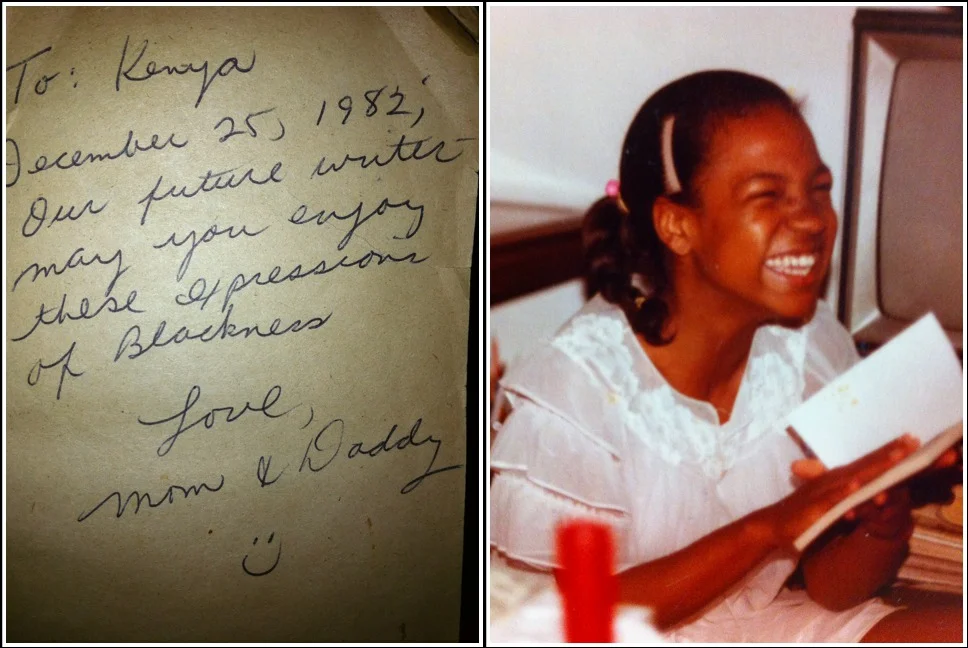 To: Kenya
December 25, 1982;
Our future writer
may you enjoy
these expressions
of Blackness
Love,
Mom & Daddy